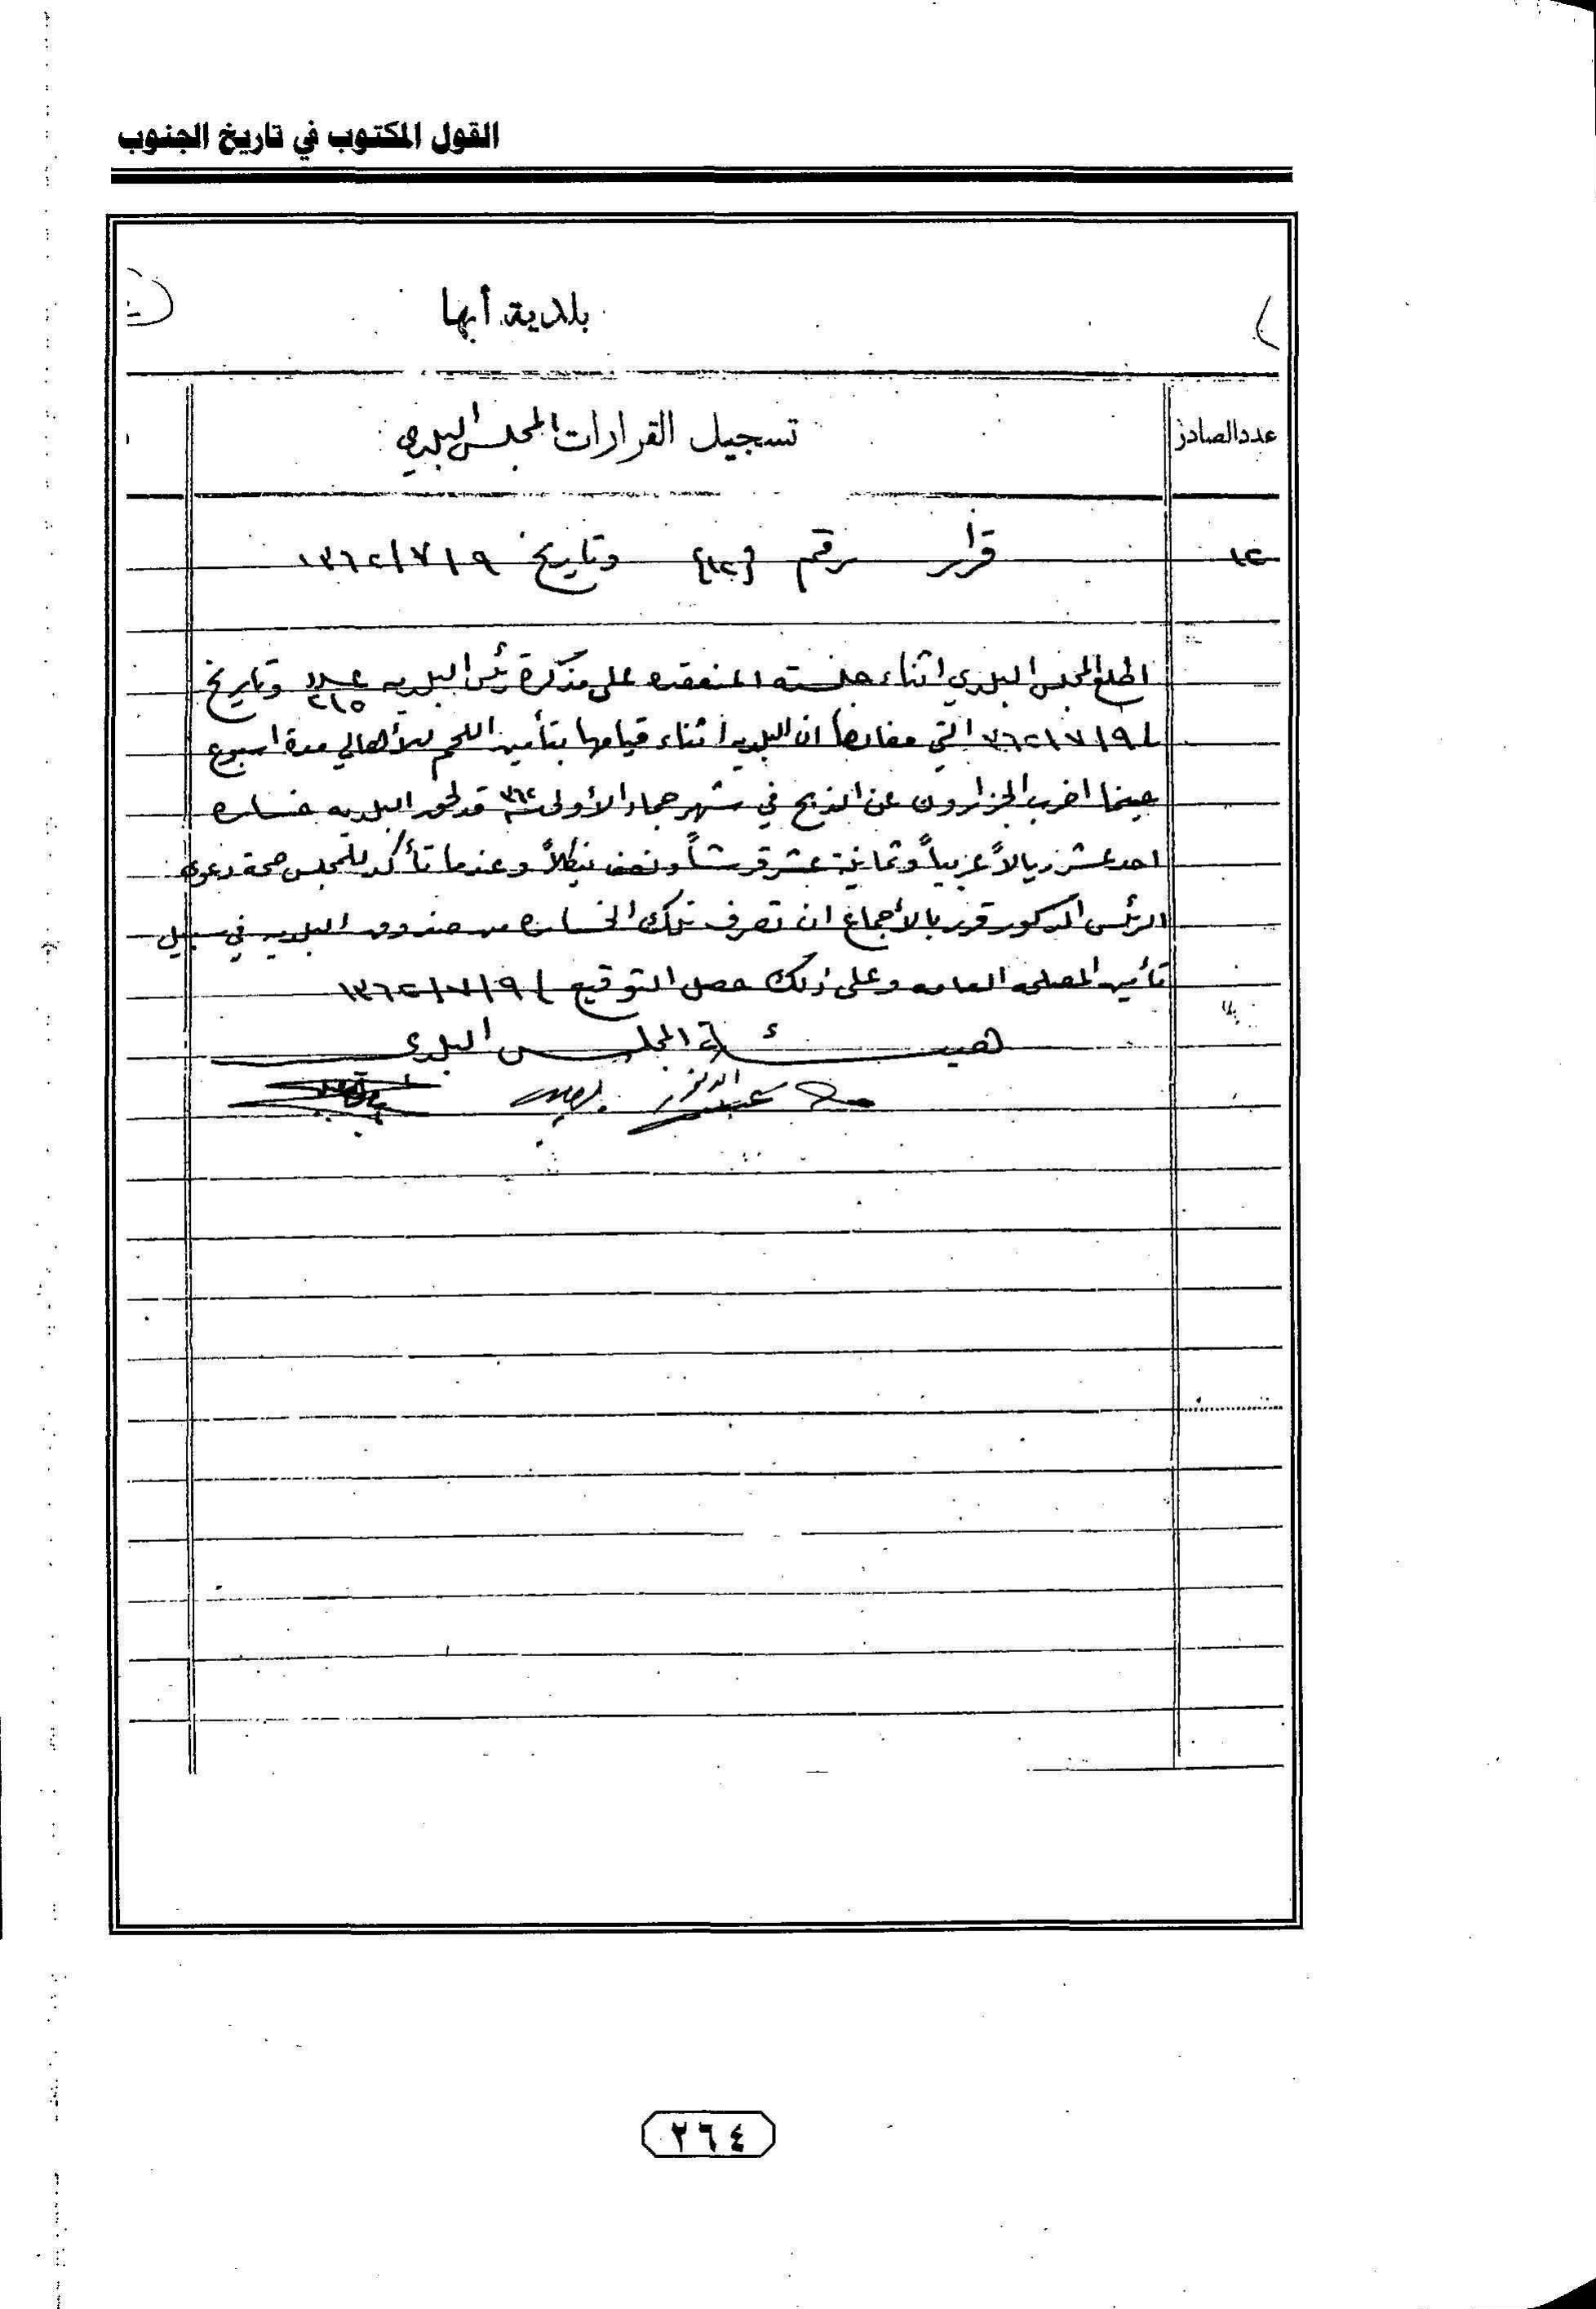 القول المكتوب في تاريخ الجنوب
بلدية أبها
عدد الصادر
تسجيل القرارات المجلس البلدي
١٢
قرار رقم {١٢} وتاريخ ١٣٦٢/٧/٩
اطلع المجلس البلدي اثناء جلسته المنعقده على مذكرة رئيس البلديه عدد ٢١٥ وتاريخ
٣٦٢/٧/٩ التي مفادها ان البلديه اثناء قيامها بتأمين اللحم للأهالي مدة اسبوع
حينما اضرب الجزارون عن الذبح في شهر جماد الأولى ٣٦٢ قد لحق البلديه خساره
احد عشر ريالاً عربياً وثمانية عشر قرشاً ونصف نيكلاً وعندما تأكد للمجلس صحة دعوى
الرئيس المذكور قرر بالأجماع ان تصرف تلك الخساره من صندوق البلديه في سبيل
تأمين المصلحه العامه وعلى ذلك حصل التوقيع / ١٣٦٢/٧/٩
هيئة المجلس البلدي
٢٦٤